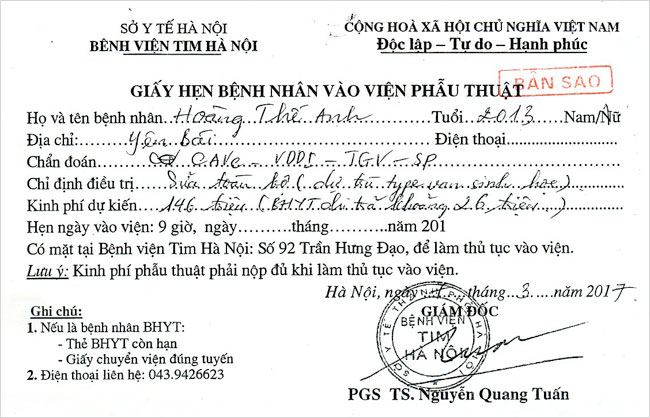 SỞ Y TẾ HÀ NỘI
BỆNH VIỆN TIM HÀ NỘI
CỘNG HOÀ XÃ HỘI CHỦ NGHĨA VIỆT NAM
Độc lập – Tự do – Hạnh phúc
BẢN SAO
GIẤY HẸN BỆNH NHÂN VÀO VIỆN PHẪU THUẬT
Họ và tên bệnh nhân Hoàng Thế Anh Tuổi 2013 Nam/Nữ
Địa chỉ: Yên Bái Điện thoại
Chẩn đoán CAVc – VDDI – TGV – SP
Chỉ định điều trị Sửa toàn bộ (dự trù type van sinh học)
Kinh phí dự kiến 146 triệu (BHYT dự trả khoảng 26 triệu)
Hẹn ngày vào viện: 9 giờ, ngày..........tháng..........năm 201
Có mặt tại Bệnh viện Tim Hà Nội: Số 92 Trần Hưng Đạo, để làm thủ tục vào viện.
Lưu ý: Kinh phí phẫu thuật phải nộp đủ khi làm thủ tục vào viện.
Hà Nội, ngày tháng 3 năm 2017
GIÁM ĐỐC
SỞ Y TẾ THÀNH PHỐ HÀ NỘI
BỆNH VIỆN
TIM
HÀ NỘI
PGS TS. Nguyễn Quang Tuấn
Ghi chú:
1. Nếu là bệnh nhân BHYT:
- Thẻ BHYT còn hạn
- Giấy chuyển viện đúng tuyến
2. Điện thoại liên hệ: 043.9426623